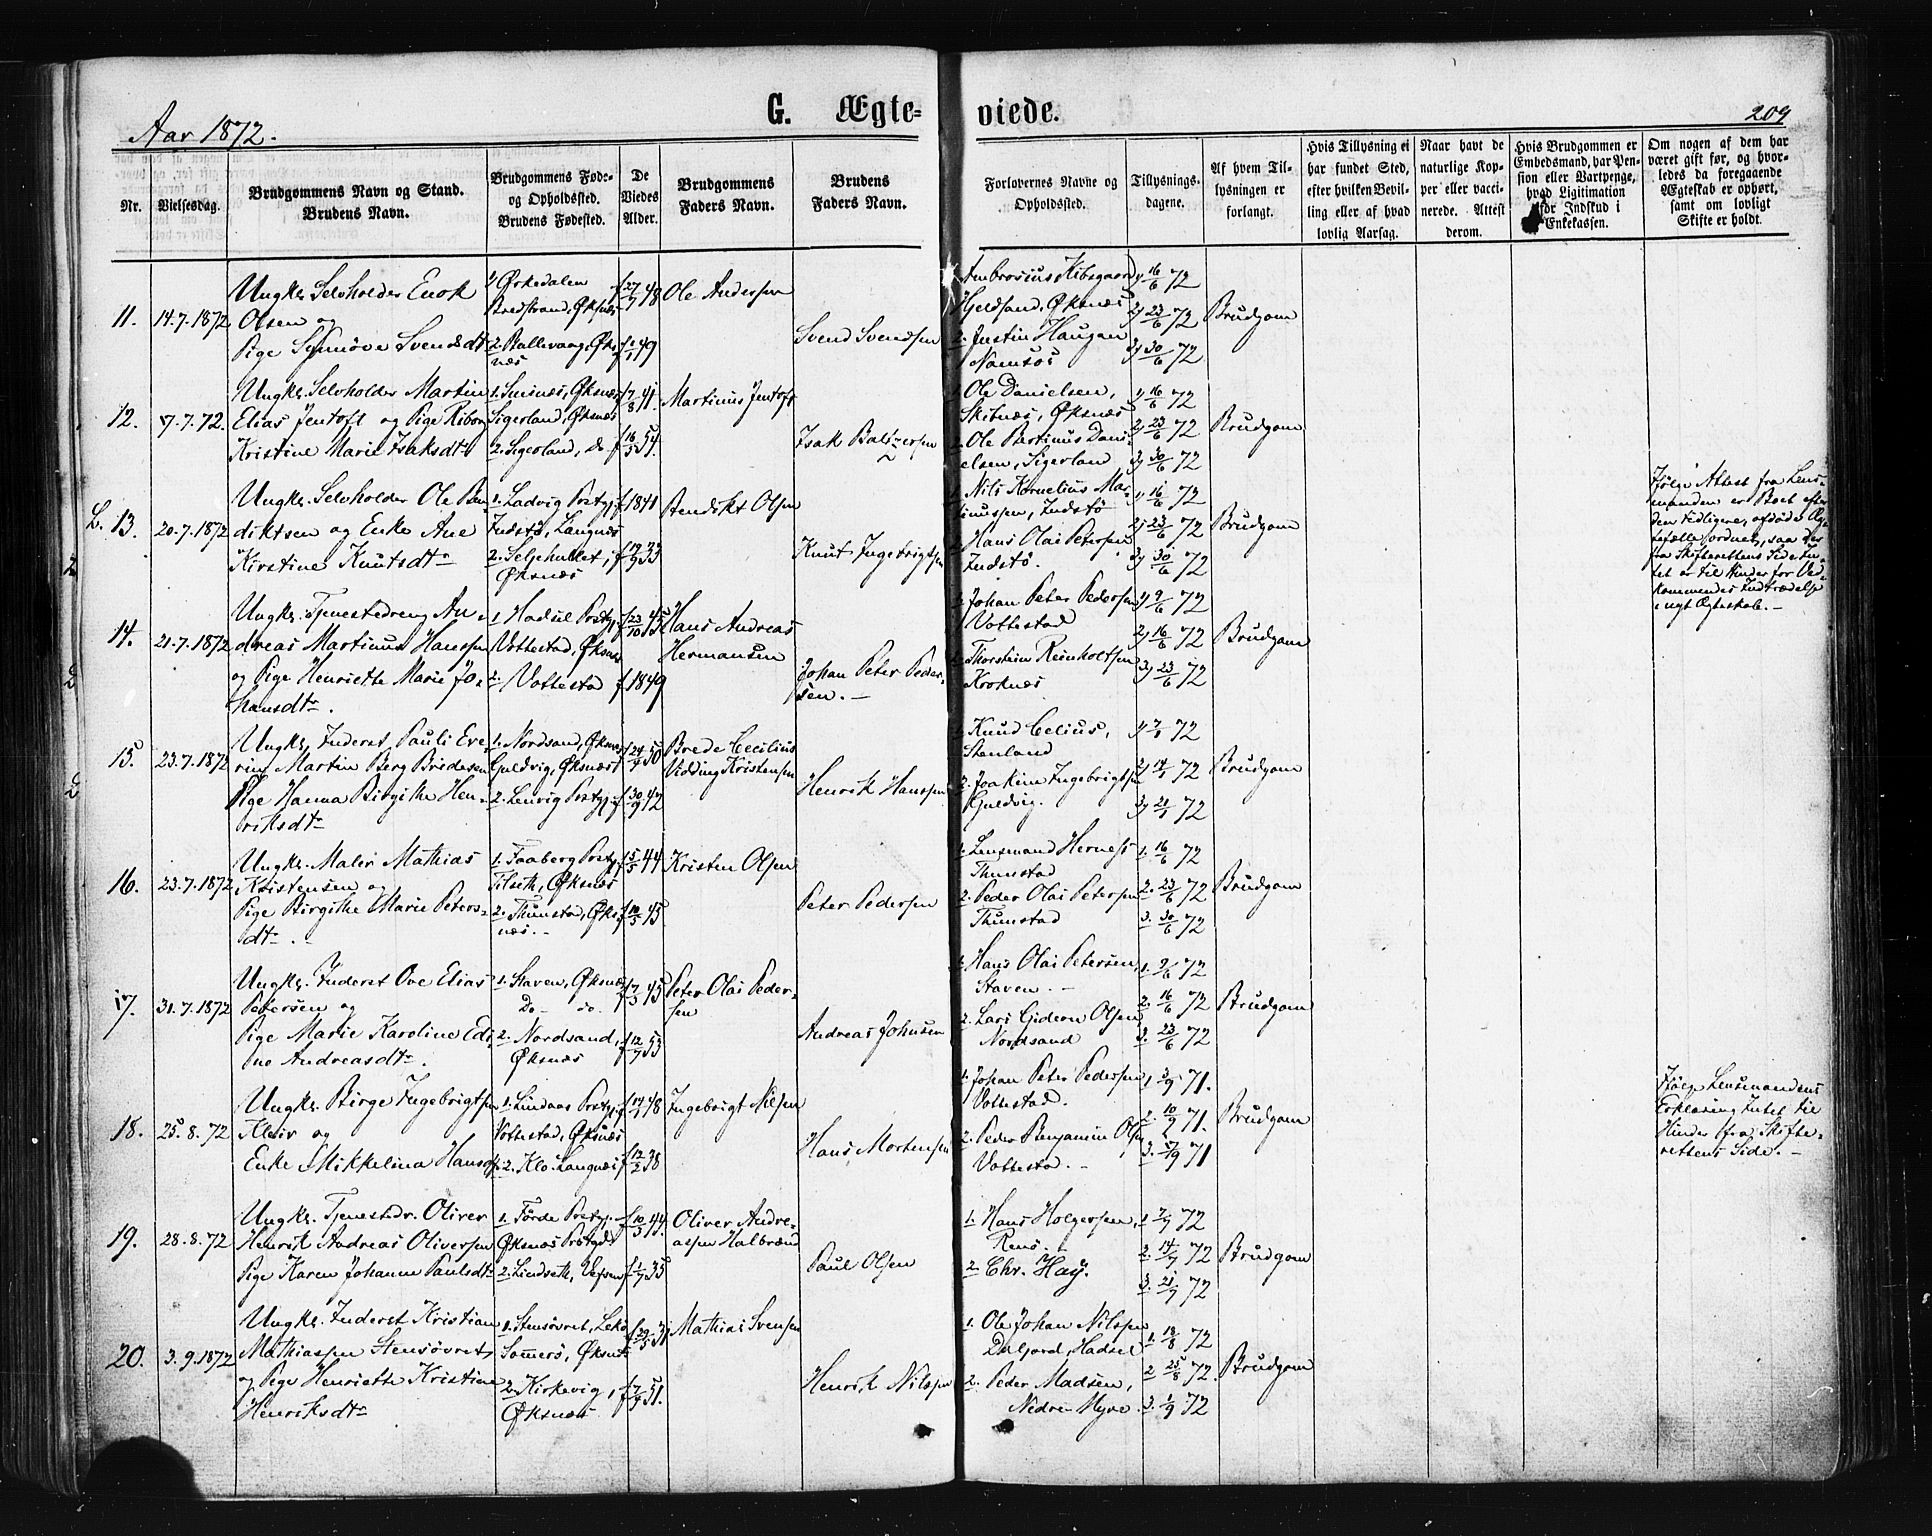 Aar 1872.
G. Ægte-
viede.
209
Nr.
Vielsesdag.
Brudgommens Navn og Stand.
Brudens Navn.
Brudgommens Fød:-
og Opholdssted.
Brudens Fødested.
De
Viedes
Alder.
Brudgommens
Faders Navn.
Brudens
Faders Navn.
Forlovernes Navne og
Opholdssted.
Tillysnings-
dagene.
Af hvem Til-
lysningen er
forlangt.
Hvis Tillysning ei
har fundet Sted,
efter hvilken Bevil-
ling eller af hvad
lovlig Aarsag.
Naar havt de
naturlige Kop-
per eller vacci-
nerede. Attest
derom.
Hvis Brudgommen er
Embedsmand, har Pen-
sion eller Vartpenge,
hvad Ligitimation
for Indskud i
Enkekassen.
Om nogen af dem har
været gift før, og hvor-
ledes da foregaaende
Ægteskab er ophørt,
samt om lovligt
Skifte er holdt.
11.
14.7.1872
Ungkr. Selvholder Enok
Olsen og
Pige Synnøve Svendsdtr
1 Ørkedalen
Bredstrand, Øksnæs
2. Ballevaag, Øks
næs
f 27/7 48
f 1/1 49
Ole Andersen
Svend Svendsen
Ambrosius Kibsgaard
Hjeldsand, Øksnæs
2. Justin Haugan
Namsos
1) 16/6 72
2) 23/6 72
3) 30/6 72
Brudgom
12.
17.7.72.
Ungkr. Selvholder Martin
Elias Jentoft og Pige Riborg
Kristine Marie Isaksdtr
1. Smines, Øksnæs
Sigerland, Øksnæs
2. Sigerland, do
f 7/8 41.
f 16/5 54.
Martinus Jentoft
Isak Baltzersen
Ole Danielsen,
Skibnæs, Øksnæs
2. Ole Bertinus Dani-
elsen, Sigerland
1) 16/6 72
2) 23/6 72
3) 30/6 72
Brudgom
L. 13.
20.7.1872
Ungkr. Selvholder Ole Ben-
diktsen og Enke Ane
Kirstine Knutsdtr
1. Ladvig Prstgj.
Indstø, Langnæs
2. Seljehullet, i
Øksnæs
f 1841
f 19/9 33
Bendikt Olsen
Knut Ingebrigtsen
Nils Kornelius Mar-
tinussen, Indstø
Hans Olai Petersen
Indstø.
1) 16/6 72
2) 23/6 72
3) 30/6 72
Brudgom
Ifølge Attest fra Lens-
manden er Boet efter
den tidligere, afdøde Æg-
tefælle ordnet, saa der
fra Skifterettens Side In-
tet er til Hinder for Ved-
kommendes Indtrædelse
i nyt Ægteskab. -
14.
21.7.1872
Ungkr. Tjenestedreng An-
dreas Martinus Hanssen
og Pige Henriette Marie Jo-
hansdtr.
1. Hadsel Prstgj.
Vottestad, Øksnæs
2. Vottestad
f 23/10 45
f 1849
Hans Andreas
Hermansen
Johan Peter Peder-
sen. -
1. Johan Peter Pedersen
Vottestad
2. Thorstein Reinholtsen
Kroknæs
1) 9/6 72
2) 16/6 72
3) 23/6 72
Brudgom
15.
23.7.1872
Ungkr. Inderst Pauli Eve-
rin Martin Berg Bredesen
Pige Hanna Birgithe Hen-
riksdtr
1. Nordsand, Øksnæs
Guldvig, Øksnæs
2. Lenvig Prstgj.
f 24/4 50
f 30/9 42
Brede Cecilius
Vidding Kristensen
Henrik Hanssen
Knud Celius,
Stenland
2. Joakim Ingebrigtsen
Guldvig.
1) 7/7 72
2) 14/7 72
3) 21/7 72
Brudgom
16.
23.7.1872
Ungkr. Maler Mathias
Kristensen og
Pige Birgithe Marie Peters-
dtr. -
1. Faaberg Prstgj.
Tilseth, Øksnæs
2. Thunstad, Øks-
næs. -
f 5/5 44
f 10/5 45
Kristen Olsen
Peter Pedersen
1. Lensmand Herness
Thunstad
2. Peder Olai Petersen
Thunstad
1. 16/6 72
2. 23/6 72
3. 30/6 72
Brudgom
17.
31.7.1872
Ungkr. Inderst Ove Elias
Petersen og
Pige Marie Karoline Edi-
ne Andreasdtr.
1. Staven, Øksnæs
Do- do.
2. Nordsand,
Øksnæs
f 7/3 45
f 12/7 53
Peter Olai Peder-
sen
Andreas Johnsen
1. Hans Olai Petersen,
Staven. -
2. Lars Gideon Olsen
Nordsand
1. 9/6 72
2. 16/6 72
3. 23/6 72
Brudgom
18.
25.8.72
Ungkr. Birge Ingebrigtsen
Kleiv og
Enke Mikkelina Hansdtr
1. Lindaas Prstgj.
Vottestad, Øksnæs
2. Klo Langnæs
f 14/2 48
f 12/2 38
Ingebrigt Nilsen
Hans Mortensen
1. Johan Peter Pedersen
Vottestad.
2. Peder Benjamin Olsen
Vottestad. -
1 3/9 71.
2. 10/9 71.
3. 17/9 71
Brudgom
Ifølge Lensmandens
Erklæring Intet til
Hinder fra Skifte-
rettens Side. -
19.
28.8.72
Ungkr. Tjenestedr. Oliver
Henrik Andreas Oliversen
Pige Karen Johanne Paulsdtr
1. Førde Prstgj.
Øksnæs Prstgd
2. Lindseth, Vefsen
f 10/3 44.
f 1/7 35
Oliver Andre-
assen Halbrænd
Paul Olsen
1. Hans Holgersen,
Rens.
2 Chr. Høy.
1 7/7 72
2. 14/7 72
3. 21/7 72
Brudgom
20.
3.9.1872
Ungkr. Inderst Kristian
Mathiassen Stensøvret
og Pige Henriette Kristine
Henriksdtr
1. Stensøvret, Lekø
Sommerø, Øksnæs
2. Kirkevig,
Øksnæs
f 29/5 31
f 7/9 51.
Mathias Svensen
Henrik Nilssen
1. Ole Johan Nilssen
Dalfjord, Hadsel
2. Peder Madsen,
Nedre Myre.
1. 18/8 72
2 25/8 72.
3. 1/9 72
Brudgom